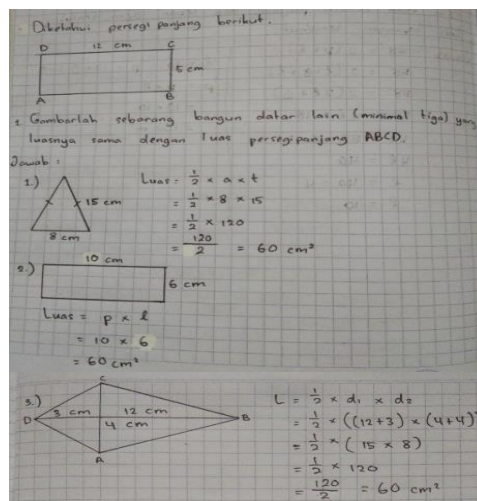 Diketahui persegi panjang berikut.
D 12 cm C
5 cm
A B
1. Gambarlah sebarang bangun datar lain (minimal tiga) yang
luasnya sama dengan luas persegi panjang ABCD.
Jawab :
1.) 15 cm
8 cm
Luas = 1/2 × a × t
= 1/2 × 8 × 15
= 1/2 × 120
= 120/2 = 60 cm²
2.) 10 cm
6 cm
Luas = p × l
= 10 × 6
= 60 cm²
3.) C
D 3 cm 12 cm B
4 cm
A
L = 1/2 × d₁ × d₂
= 1/2 × ((12+3) × (4+4)
= 1/2 × (15 × 8)
= 1/2 × 120
= 120/2 = 60 cm²